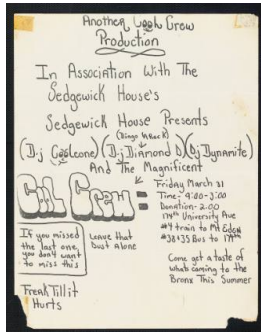 Another Cool Crew
Production
In Association With The
Sedgewick House's
Sedgewick House Presents
(D.j Cooleone) (D.j Diamond D) (D.j Dynamite)
And The Magnificent
Cool Crew
Friday March 21
Time- 9:00-3:00
Donation- 2.00
174th University Ave
#4 train to Mt Eden
#38+35 Bus to 174th
If you missed
the last one,
you don't want
to miss this
Leave that
Dust Alone
Come get a taste of
whats coming to the
Bronx This Summer
Freak Till it
Hurts